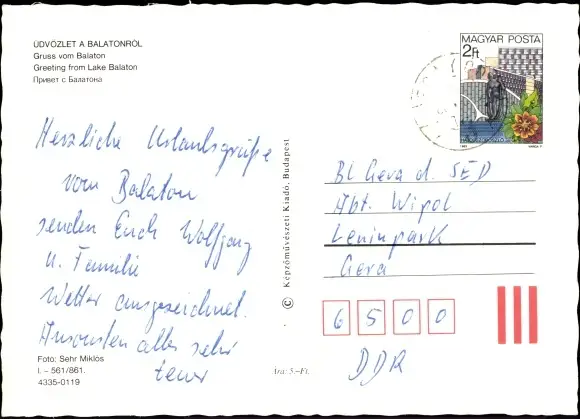 ÜDVÖZLET A BALATONRÓL
Gruss vom Balaton
Greeting from Lake Balaton
Привет с Балатона
Herzliche Urlaubsgrüße
vom Balaton
senden Euch Wolfgang
u. Familie
Wetter ausgezeichnet.
Ansonsten alles sehr
teuer
Foto: Sehr Miklós
I. – 561/861.
4335-0119
Ára: 5,–Ft.
© Képzőművészeti Kiadó, Budapest
MAGYAR POSTA
2Ft
BL Gera d. SED
Abt. Wipol
Leninpark
Gera
6 5 0 0
DDR